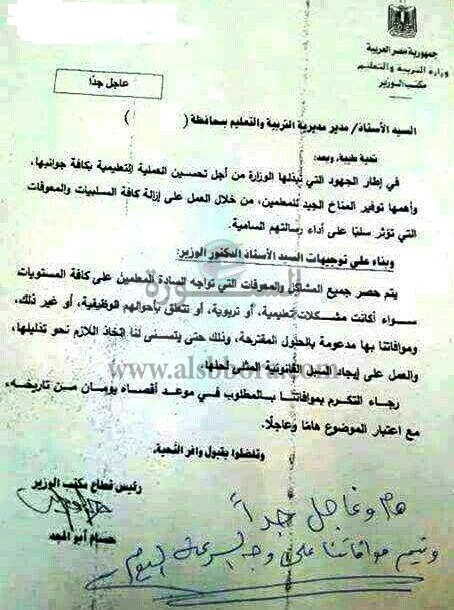 جمهورية مصر العربية
وزارة التربية والتعليم
مكتب الوزير
عاجل جدًا
السيد الأستاذ/ مدير مديرية التربية والتعليم بمحافظة ( )
تحية طيبة، وبعد:
في إطار الجهود التي تبذلها الوزارة من أجل تحسين العملية التعليمية بكافة جوانبها،
وأهمها توفير المناخ الجيد للمعلمين، من خلال العمل على إزالة كافة السلبيات والمعوقات
التي تؤثر سلبًا على أداء رسالتهم السامية.
وبناء على توجيهات السيد الأستاذ الدكتور الوزير:
يتم حصر جميع المشاكل والمعوقات التي تواجه السادة المعلمين على كافة المستويات
سواء أكانت مشكلات تعليمية، أو تربوية، أو تتعلق بأحوالهم الوظيفية، أو غير ذلك،
وموافاتنا بها مدعومة بالحلول المقترحة، وذلك حتى يتسنى لنا اتخاذ اللازم نحو تذليلها،
والعمل على إيجاد السبل القانونية المثلى لحلها.
www.alsbbora
رجاء التكرم بموافاتنا بالمطلوب في موعد أقصاه يومان من تاريخه،
مع اعتبار الموضوع هامًا وعاجلًا.
وتفضلوا بقبول وافر التحية.
رئيس قطاع مكتب الوزير
حسام أبو المجد
هام وعاجل جداً
ويتم موافاتنا على وجه السرعة اليوم